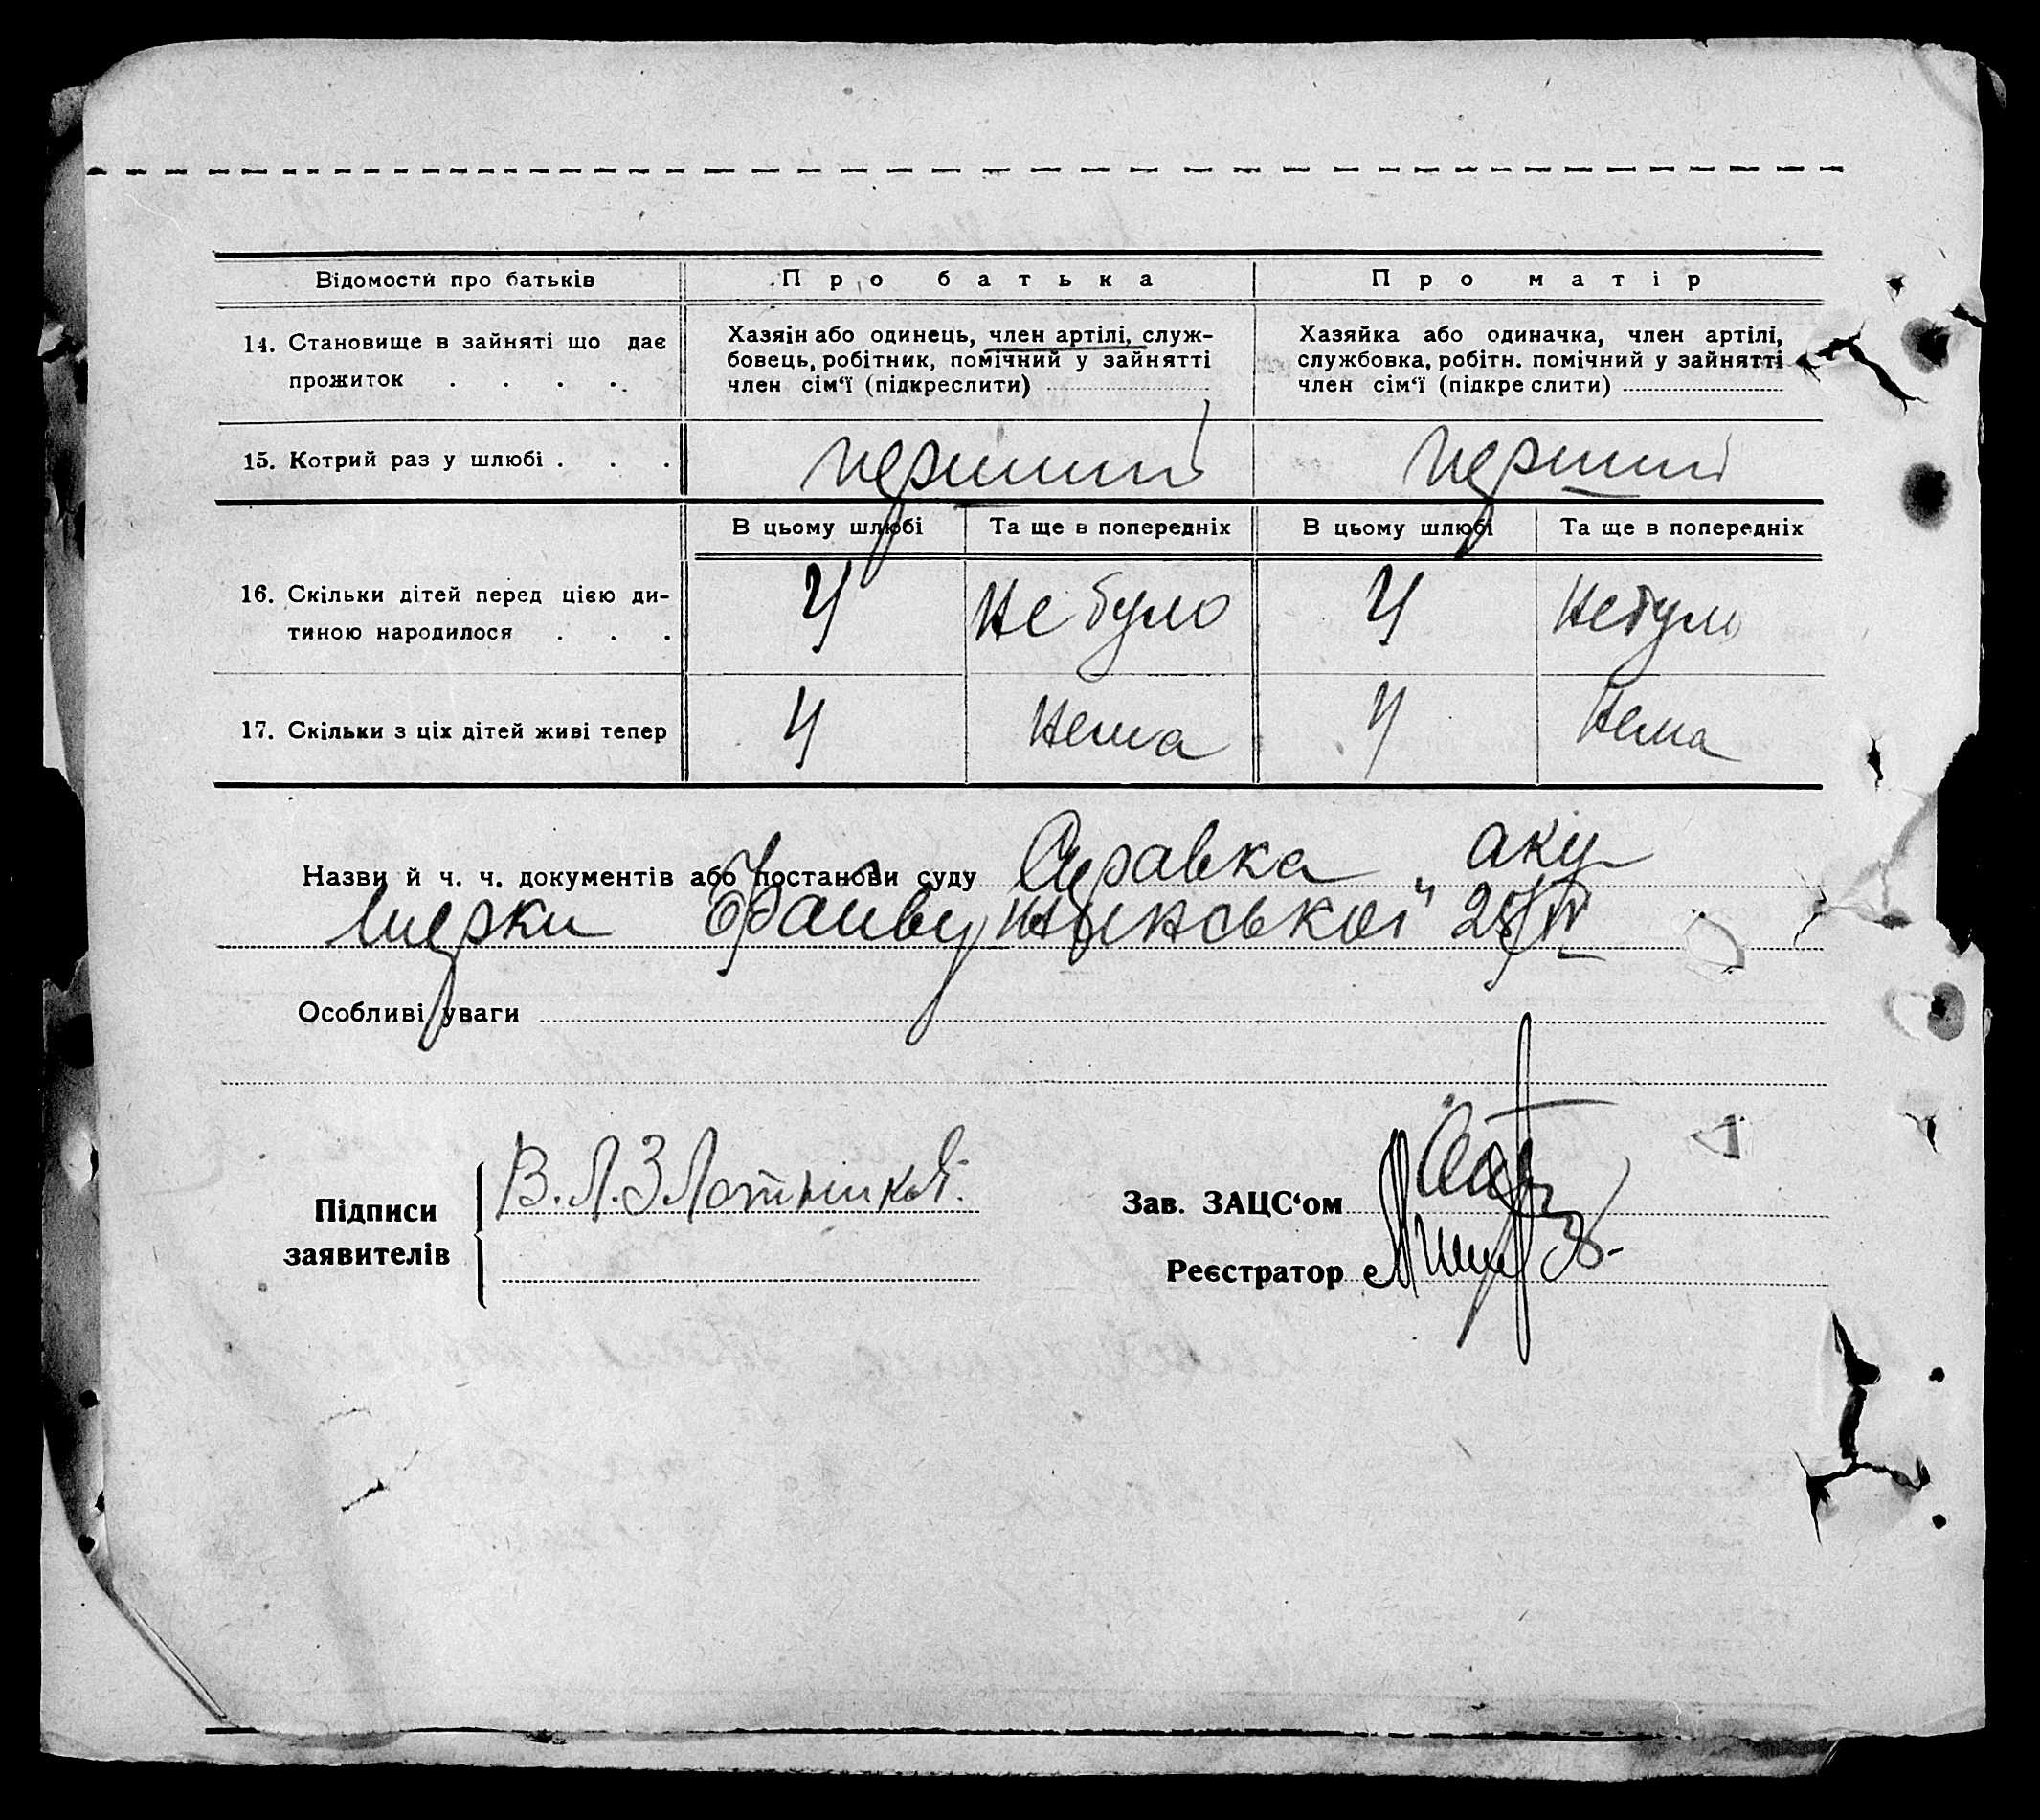 Відомости про батьків Про батька Про матір
14. Становище в зайняті що дає прожиток . . . .
Хазяїн або одинець, член артілі, служ-
бовець, робітник, помічний у зайнятті
член сім‘ї (підкреслити)
Хазяйка або одиначка, член артілі,
службовка, робітн. помічний у зайнятті
член сім‘ї (підкре слити)
15. Котрий раз у шлюбі . . . перший перший
В цьому шлюбі Та ще в попередніх В цьому шлюбі Та ще в попередніх
16. Скільки дітей перед цією ди-
тиною народилося . . . 4 не було 4 не було
17. Скільки з ціх дітей живі тепер 4 нема 4 нема
Назви й ч. ч. документів або постанови суду Справка аку
шерки 25/IV
Особливі уваги
Підписи
заявителів
В. Л. Злотницкий.
Зав. ЗАЦС‘ом
Реєстратор